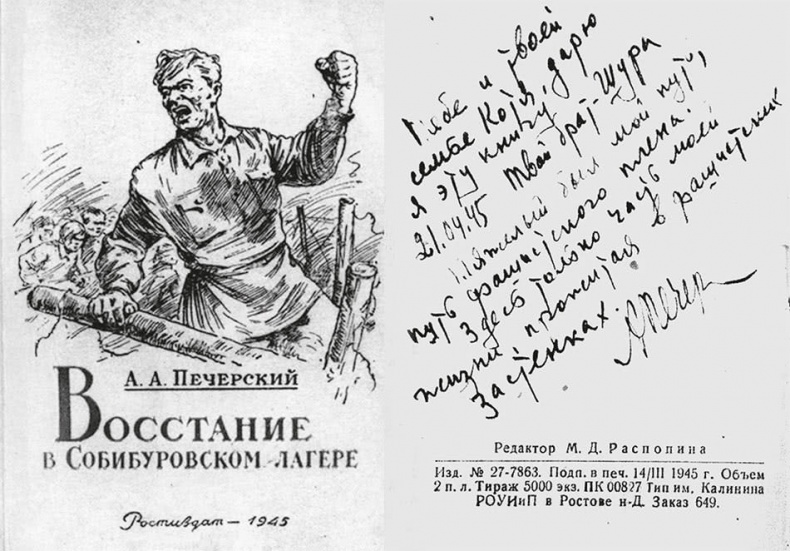 А. А. ПЕЧЕРСКИЙ
ВОССТАНИЕ
В СОБИБУРОВСКОМ ЛАГЕРЕ
Ростиздат — 1945
Тебе и твоей
семье Котя, дарю
я эту книгу.
21.04.45 Твой брат Шура
Тяжелый был мой путь,
путь фашистского плена.
Здесь только часть моей
жизни прожитая в фашистских
застенках.
А Печер
Редактор М. Д. Распопина
Изд. № 27-7863. Подп. в печ. 14/III 1945 г. Объем
2 п. л. Тираж 5000 экз. ПК 00827 Тип им. Калинина
РОУИиП в Ростове н-Д. Заказ 649.